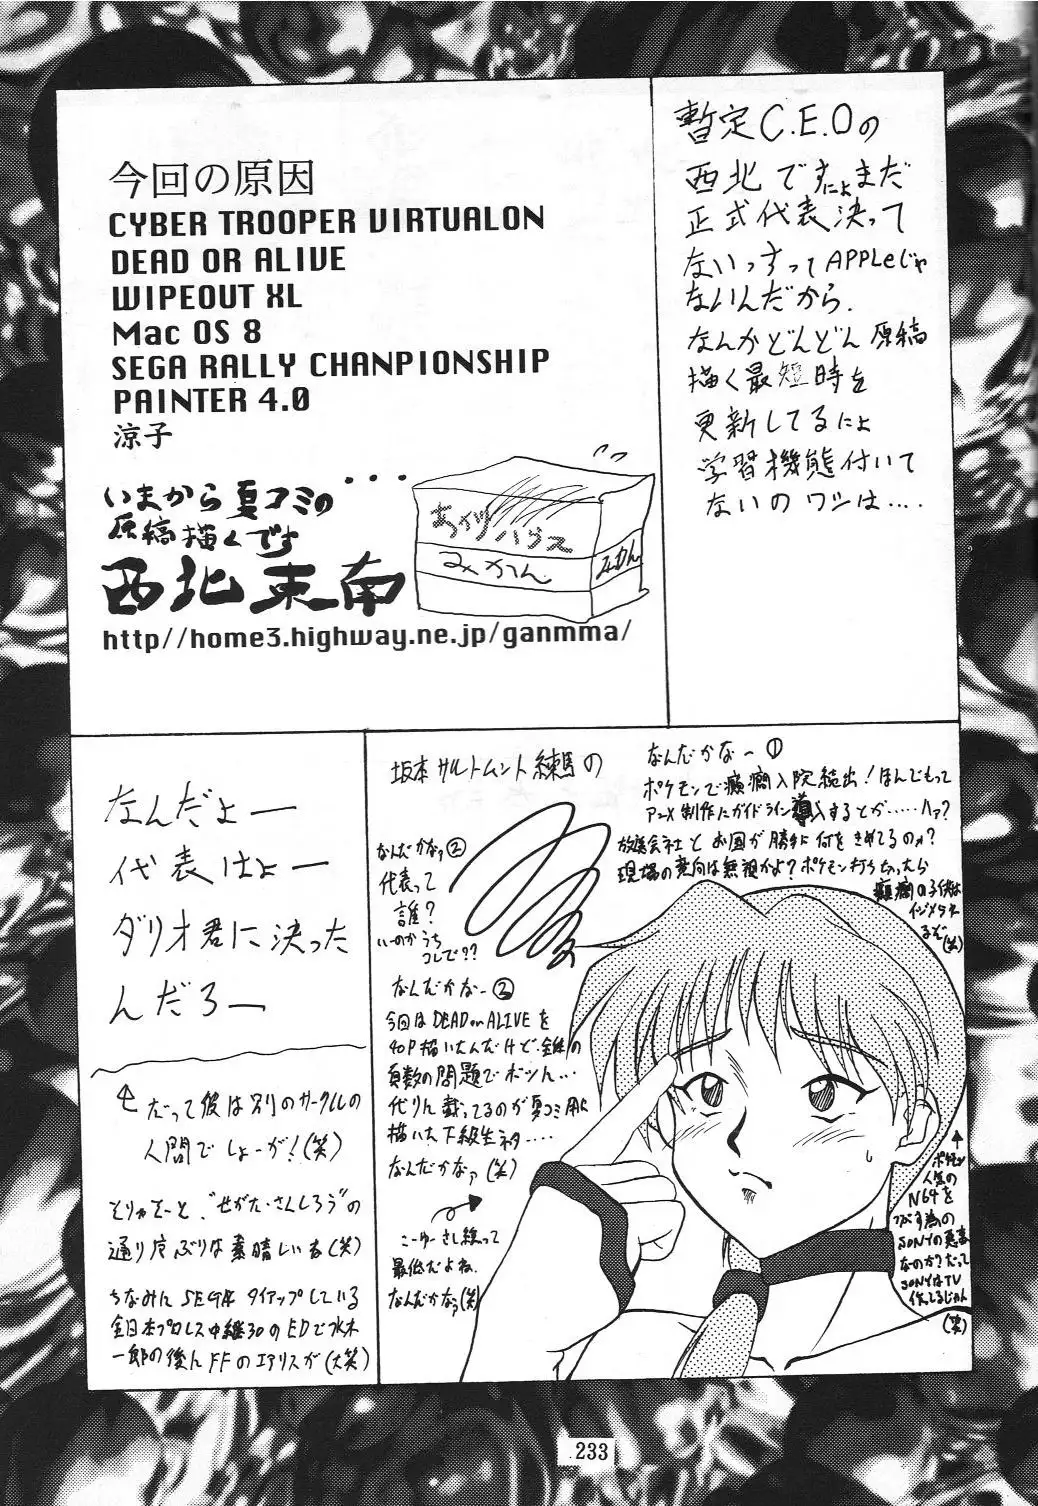 暫定C.E.Oの
西北ですにょまだ
正式代表決って
ないっすってAPPLeじゃ
ないんだから.
なんかどんどん原稿
描く最短時を
更新してるにょ
学習機態付いて
ないのワシは....
今回の原因
CYBER TROOPER VIRTUALON
DEAD OR ALIVE
WIPEOUT XL
Mac OS 8
SEGA RALLY CHANPIONSHIP
PAINTER 4.0
涼子
いまから夏コミの・・・
原稿描くです
西北東南
あつがりハウス
みかん
みかん
http//home3.highway.ne.jp/ganmma/
坂本サルトムント練馬の
なんだかなー①
ポケモンで癲癇入院続出!ほんでもって
アニメ制作にガイドライン導入するとか......ハァ?
放送会社とお国が勝手に何をきめてるのか?
現場の意向は無視かよ?ポケモン打ち切ったら
癲癇の子供は
イジメられ
るぞ(笑)
なんだかなァ②
代表って
誰?
いーのかうち
コレで??
なんだかなー②
今回はDEAD or ALIVEを
40P描いたんだけど、全体の
頁数の問題でボツん...
代りん載ってるのが夏コミ用に
描いた下級生ネタ....
なんだかなァ(笑)
こーゆーさし絵って
最低だよね.
なんだかなァ(笑)
ポケモン
人気の
N64を
つぶす為の
SONYの悪事
なのか?だって
SONYはTV
作ってるじゃん
(笑)
なんだよー
代表はよー
ダリオ君に決った
んだろー
だって彼は別のサークルの
人間でしょーが!(笑)
とりゃえーと、"せがた・さんしろう"の
通り度ぶりな素晴しい者(笑)
ちなみにSEGA タイアップしている
全日本プロレス中継30のEDで水木
一郎の後ん FFのエアリスが(大笑)
233